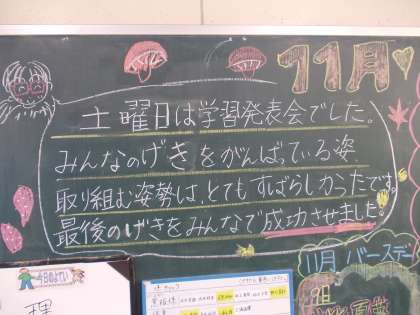 11月
土曜日は学習発表会でした。
みんなのげきをがんばっている姿、
取り組む姿勢は、とてもすばらしかったです。
最後のげきをみんなで成功させました。
11月 バースデー
今日のよてい